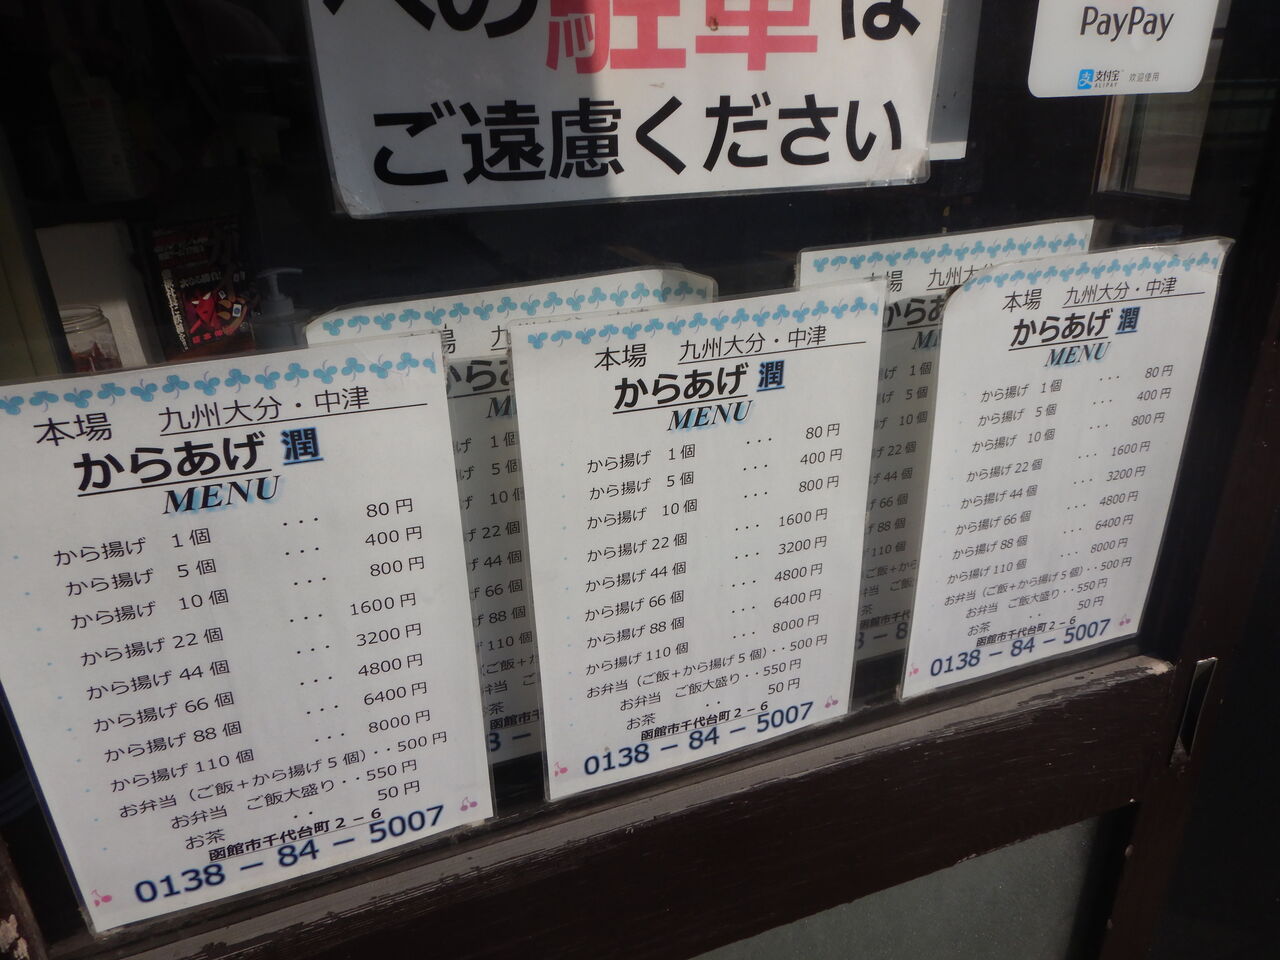 への駐車は
ご遠慮ください
PayPay
支付宝
ALIPAY
欢迎使用
本場 九州大分・中津
からあげ 潤
MENU
から揚げ 1個 ... 80円
から揚げ 5個 ... 400円
から揚げ 10個 ... 800円
から揚げ 22個 ... 1600円
から揚げ 44個 ... 3200円
から揚げ 66個 ... 4800円
から揚げ 88個 ... 6400円
から揚げ 110個 ... 8000円
お弁当（ご飯＋から揚げ5個）‥500円
お弁当 ご飯大盛り‥550円
お茶 ‥ 50円
函館市千代台町2－6
0138－84－5007
本場 九州大分・中津
からあげ 潤
MENU
から揚げ 1個 ... 80円
から揚げ 5個 ... 400円
から揚げ 10個 ... 800円
から揚げ 22個 ... 1600円
から揚げ 44個 ... 3200円
から揚げ 66個 ... 4800円
から揚げ 88個 ... 6400円
から揚げ 110個 ... 8000円
お弁当（ご飯＋から揚げ5個）‥500円
お弁当 ご飯大盛り‥550円
お茶 ‥ 50円
函館市千代台町2－6
0138－84－5007
本場 九州大分・中津
からあげ 潤
MENU
から揚げ 1個 ... 80円
から揚げ 5個 ... 400円
から揚げ 10個 ... 800円
から揚げ 22個 ... 1600円
から揚げ 44個 ... 3200円
から揚げ 66個 ... 4800円
から揚げ 88個 ... 6400円
から揚げ 110個 ... 8000円
お弁当（ご飯＋から揚げ5個）‥500円
お弁当 ご飯大盛り‥550円
お茶 ‥ 50円
函館市千代台町2－6
0138－84－5007